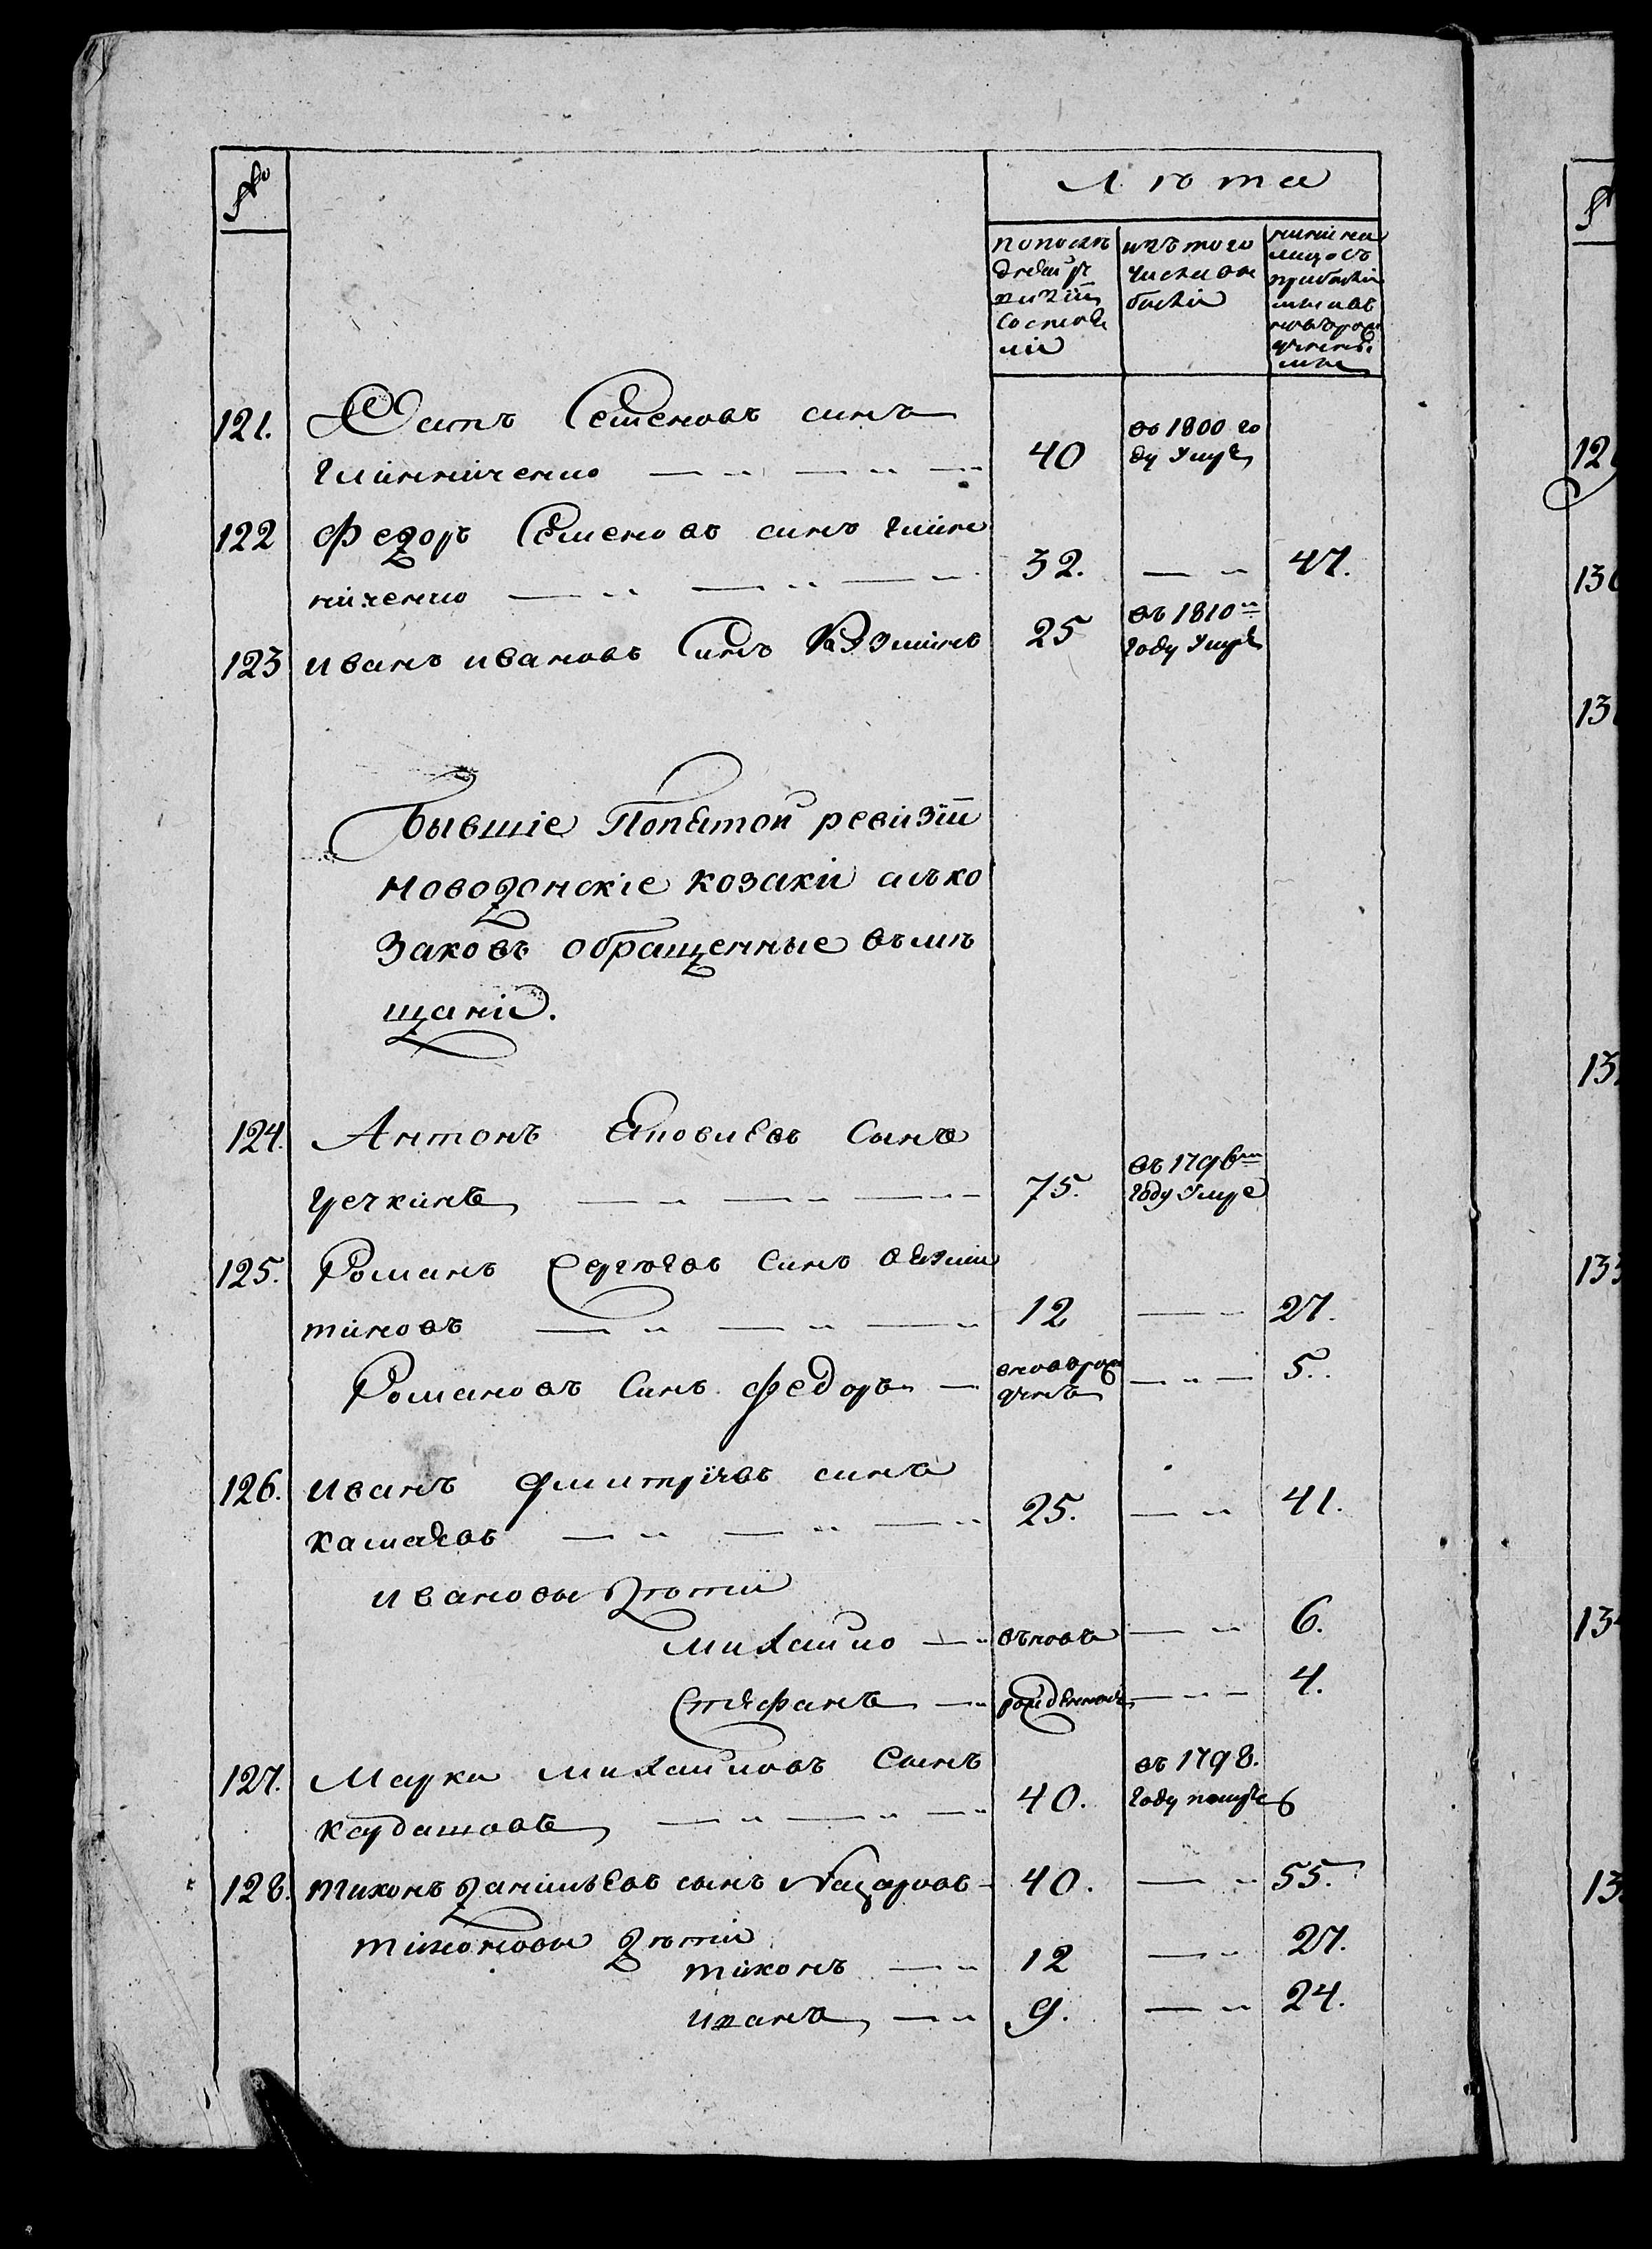 №
Лѣта
по послѣ
дней ре
визіи
состоя
ли
изъ того
числа вы
были
нынѣ на
лицо съ
прибылы
ми и
новорож
денны
ми
121. Семеновъ синъ
40
въ 1800 го
ду умре
122 Федоръ Семеновъ синъ
32. 47.
123 Иванъ Ивановъ Синъ
25
въ 1810м
году умре
Бывшіе По пятой ревизіи
Новодонскіе козаки а съ ко
заковъ обращенные въ мѣ
щаніе.
124. Антонъ Яковлевъ Сынъ
Гречкинъ
75.
въ 1796м
году умре
125. Романъ Сергѣевъ Синъ
тиновъ
12 27.
Романовъ Синъ Федоръ
вновь рож
денъ
5.
126. Иванъ Дмитріевъ синъ
Камаевъ
25. 41.
Ивановы дѣти
Михайло вновь 6.
Стефанъ рожденные 4.
127. Марко Михайловъ Сынъ
Кардашовъ
40.
въ 1798.
году помре
128. Тихонъ Данильевъ сынъ Назаровъ 40. 55.
Тихоновы дѣти
Тихонъ 12 27.
Иванъ 9. 24.